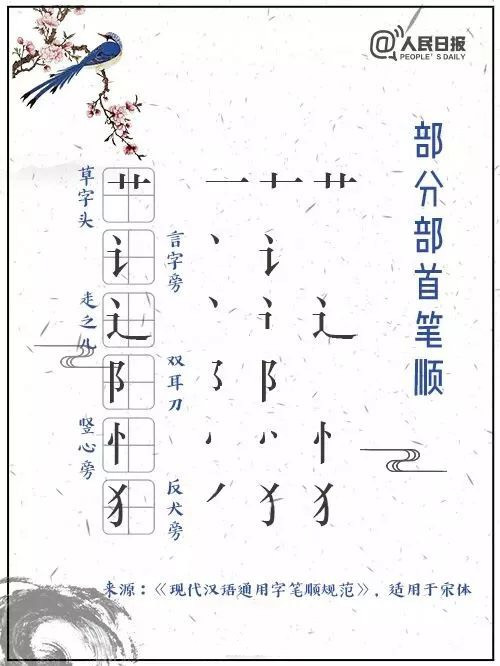 @人民日报
PEOPLE'S DAILY
部分部首笔顺
草字头
艹 一 十 艹
言字旁
讠 丶 讠
走之儿
辶 丶 讠 辶
双耳刀
阝 ㇌ 阝
竖心旁
忄 丶 丷 忄
反犬旁
犭 丿 犭 犭
来源：《现代汉语通用字笔顺规范》，适用于宋体